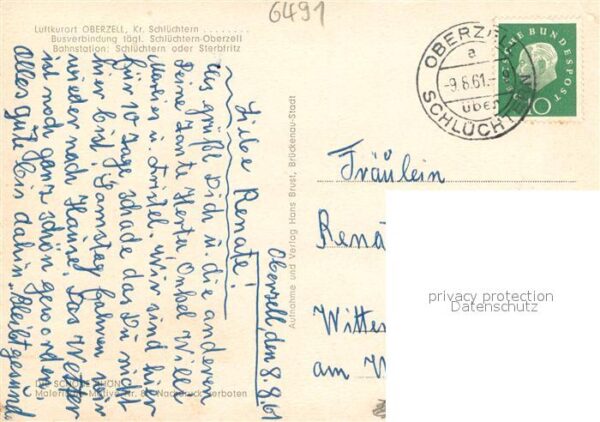 6491
Luftkurort OBERZELL, Kr. Schlüchtern
Busverbindung tägl. Schlüchtern-Oberzell
Bahnstation: Schlüchtern oder Sterbfritz
Oberzell, den 8.8.61
Liebe Renate!
Es grüßt Dich u. die anderen
Deine Tante Herta, Onkel Willi
Marin u. Christel. Wir sind hier
für 10 Tage, schade das Du nicht
hier bist. Samstag fahren wir
wieder nach Hause. Das Wetter
ist noch ganz schön geworden.
Alles gute bis dahin. Bleibt gesund
DIE SCHÖNE RHÖN
Malerische Motive Nr. Nachdruck verboten
Aufnahme und Verlag Hans Brust, Brückenau-Stadt
OBERZELL
a
-9.8.61.-
über
SCHLÜCHTERN
DEUTSCHE BUNDESPOST
10
Fräulein
Renä
Witte
am W
privacy protection
Datenschutz